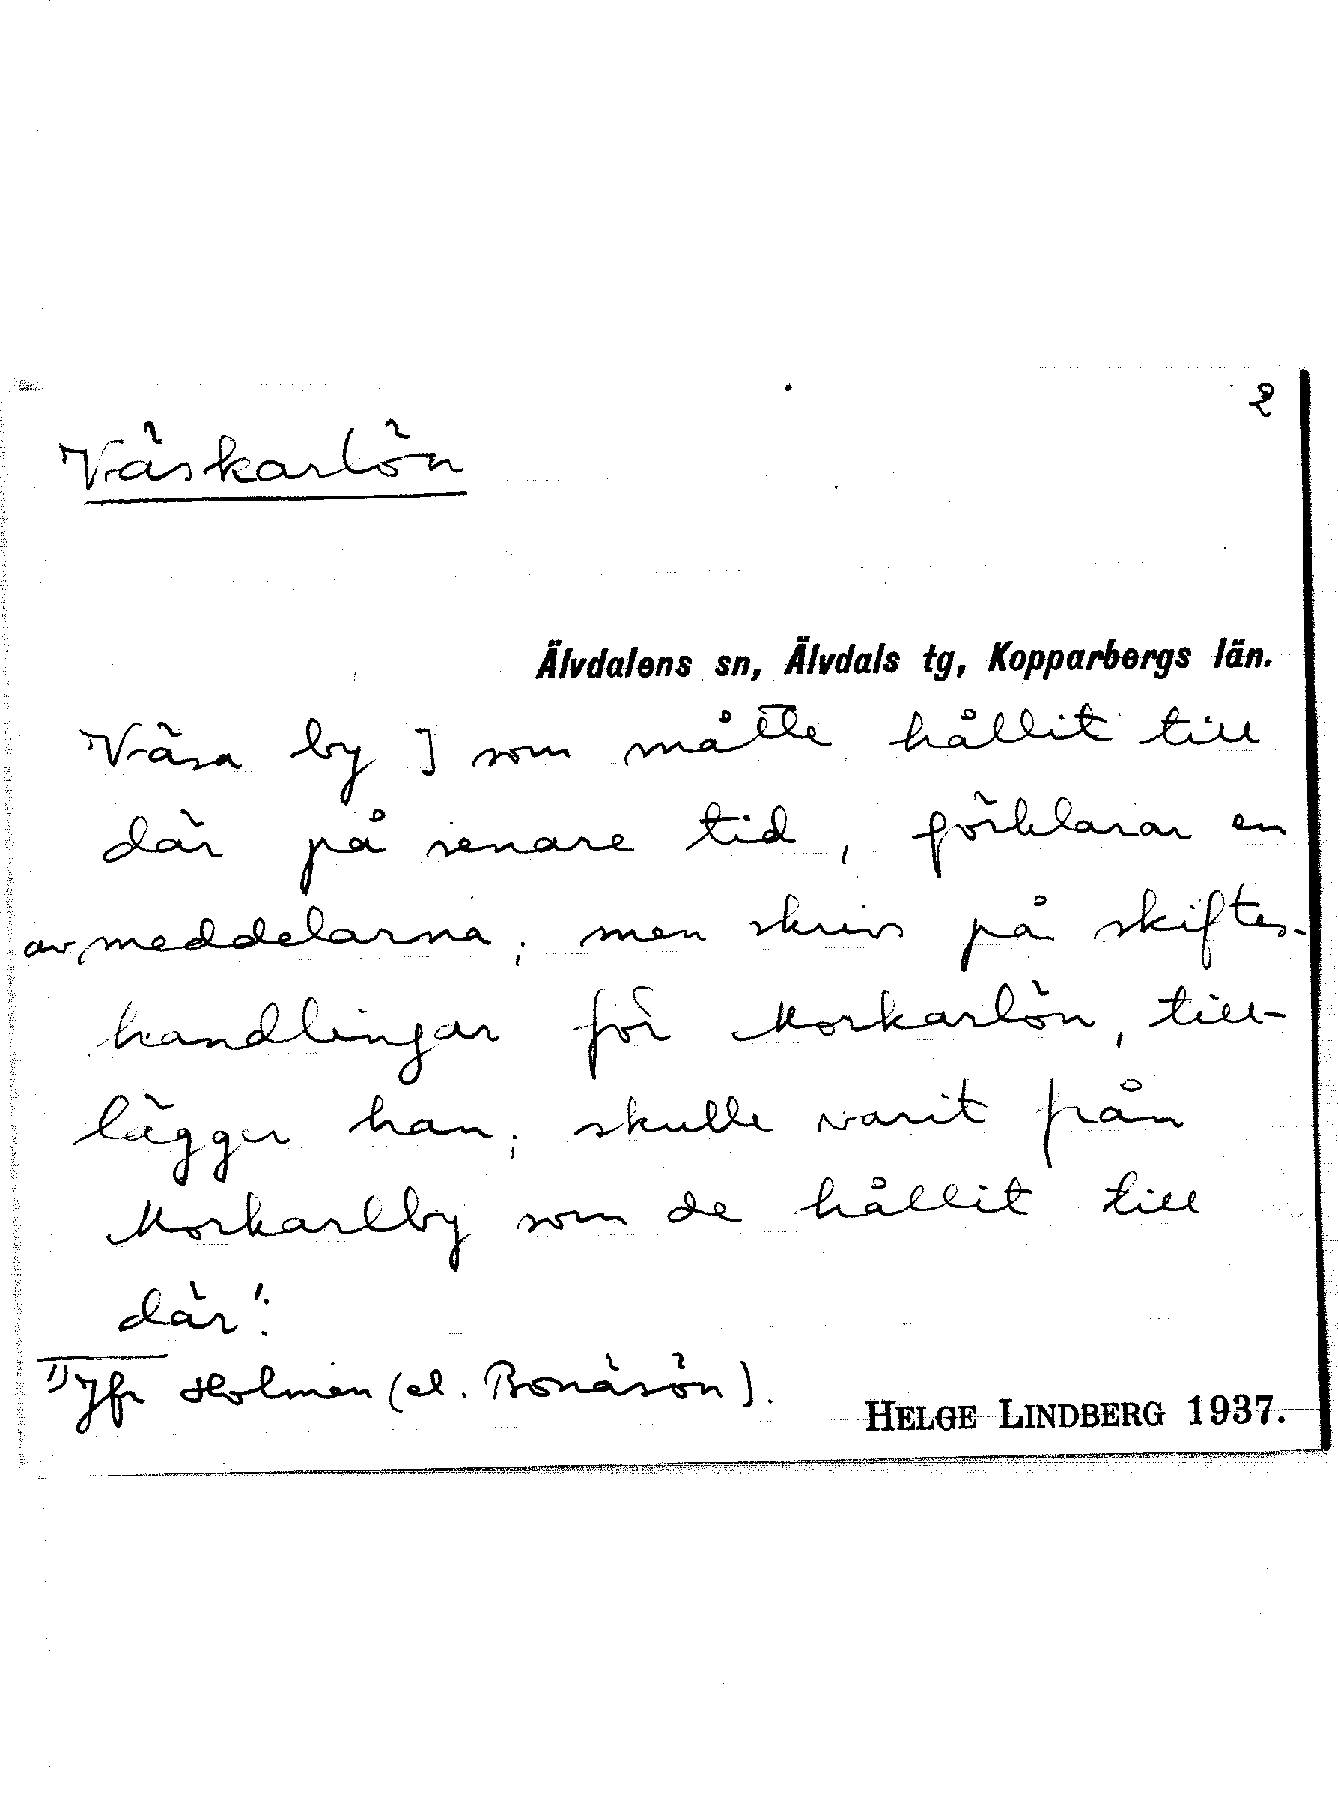 2
Väskarlön
Älvdalens sn, Älvdals tg, Kopparbergs län.
Väsa by] som måtte hållit till
där på senare tid, förklarar en
av meddelarna; men skrivs på skiftes-
handlingar för Morkarlön, till-
lägger han; skulle varit från
Morkarlby som de hållit till
där".
1) Jfr Holmen (el. Bonäsön).
HELGE LINDBERG 1937.